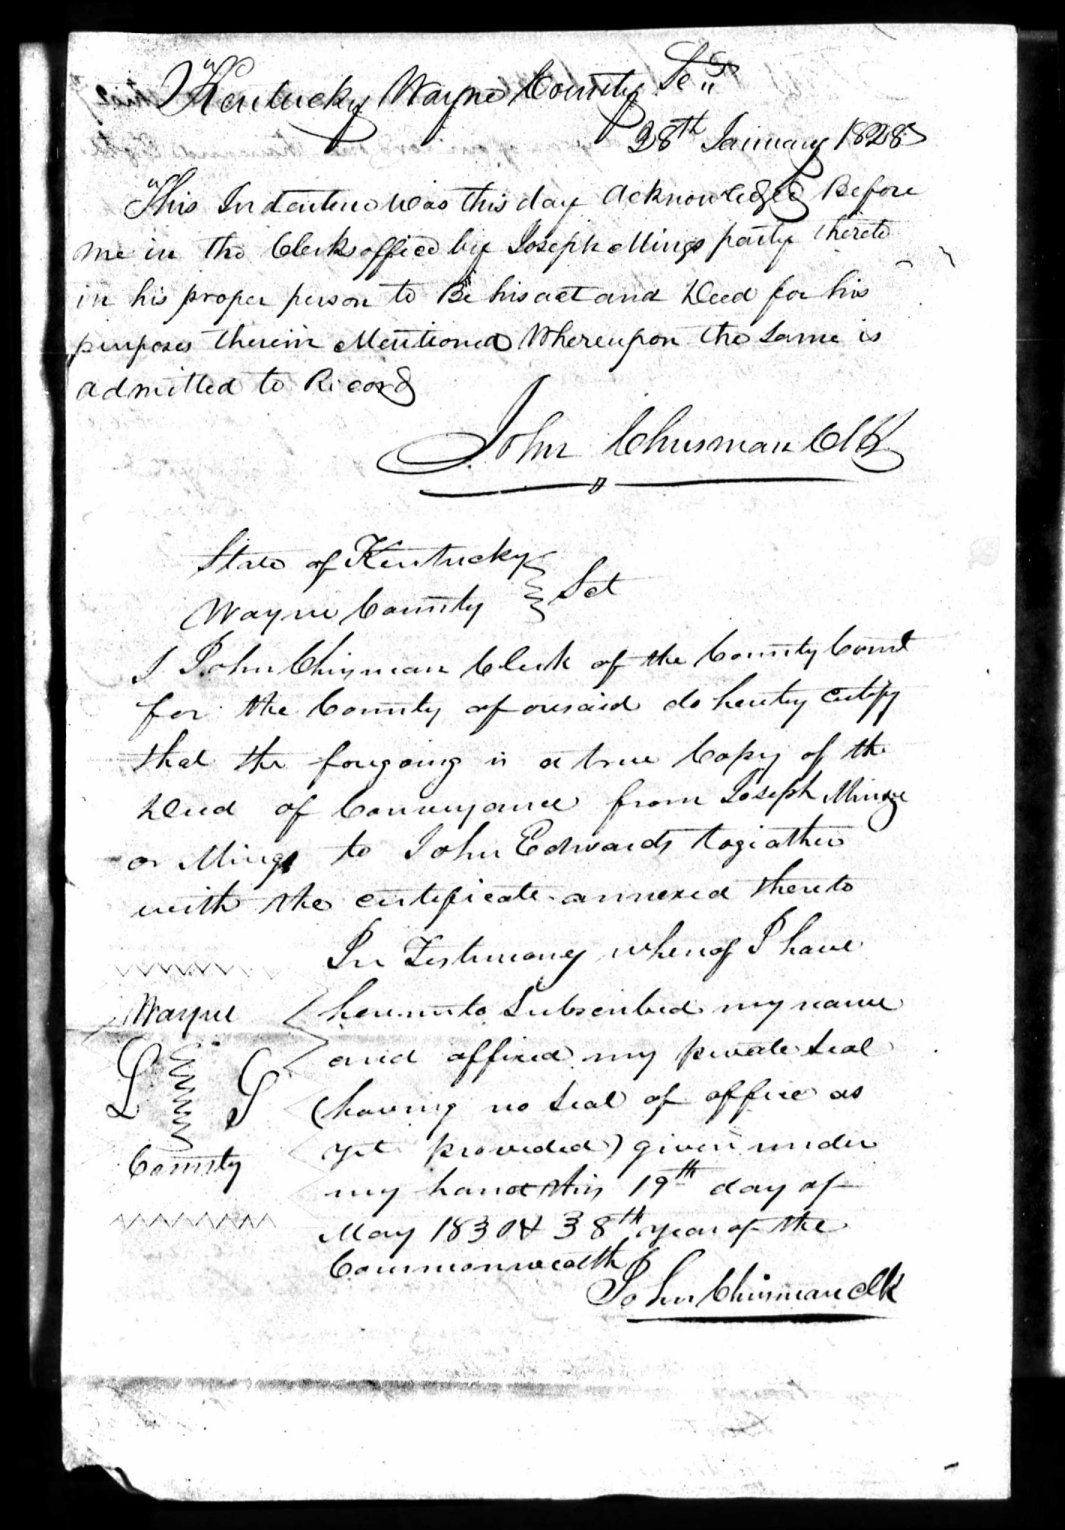 "Kentucky Wayne County Sct
28th January 1828
"This Indenture was this day acknowledged Before
me in the Clerks office by Joseph Mings party thereto
in his proper person to Be his act and Deed for his
purposes therein Mentioned Whereupon the same is
admitted to Record
John Chisman Clk
State of Kentucky
Wayne County } Sct
I John Chisman Clerk of the County Court
for the County aforesaid do hereby certify
that the forgoing is a true Copy of the
Deed of Conveyance from Joseph Minze
or Mings to John Edwards togiather
with the certificate annexed thereto
In Testimony whereof I have
hereunto Subscribed my name
and affixed my private seal
(having no seal of office as
yet provided) given under
my hand this 19th day of
May 1830 & 38th year of the
Commonwealth
John Chisman Clk
Wayne
L S
County